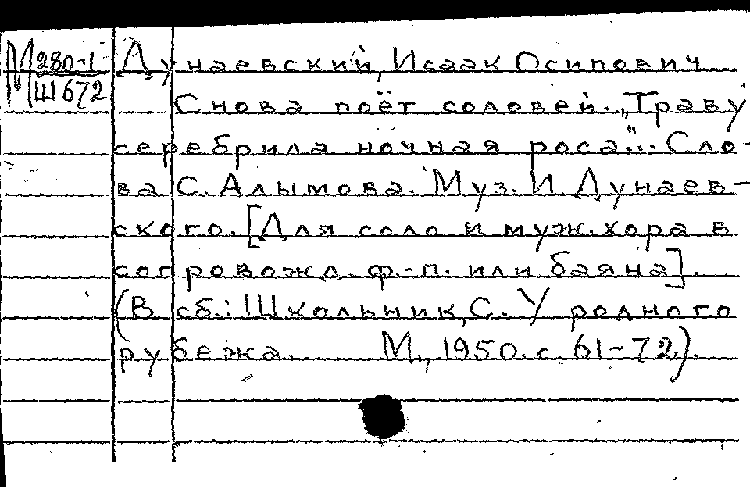 М 280-1 Дунаевский, Исаак Осипович
Ш 672
Снова поёт соловей. „Траву
серебрила ночная роса"... Сло-
ва С. Алымова. Муз. И Дунаев-
ского. [Для соло и муж. хора в
сопровожд. ф.-п. или баяна].
(В сб.: Школьник, С. У родного
рубежа. М., 1950. с. 61-72).